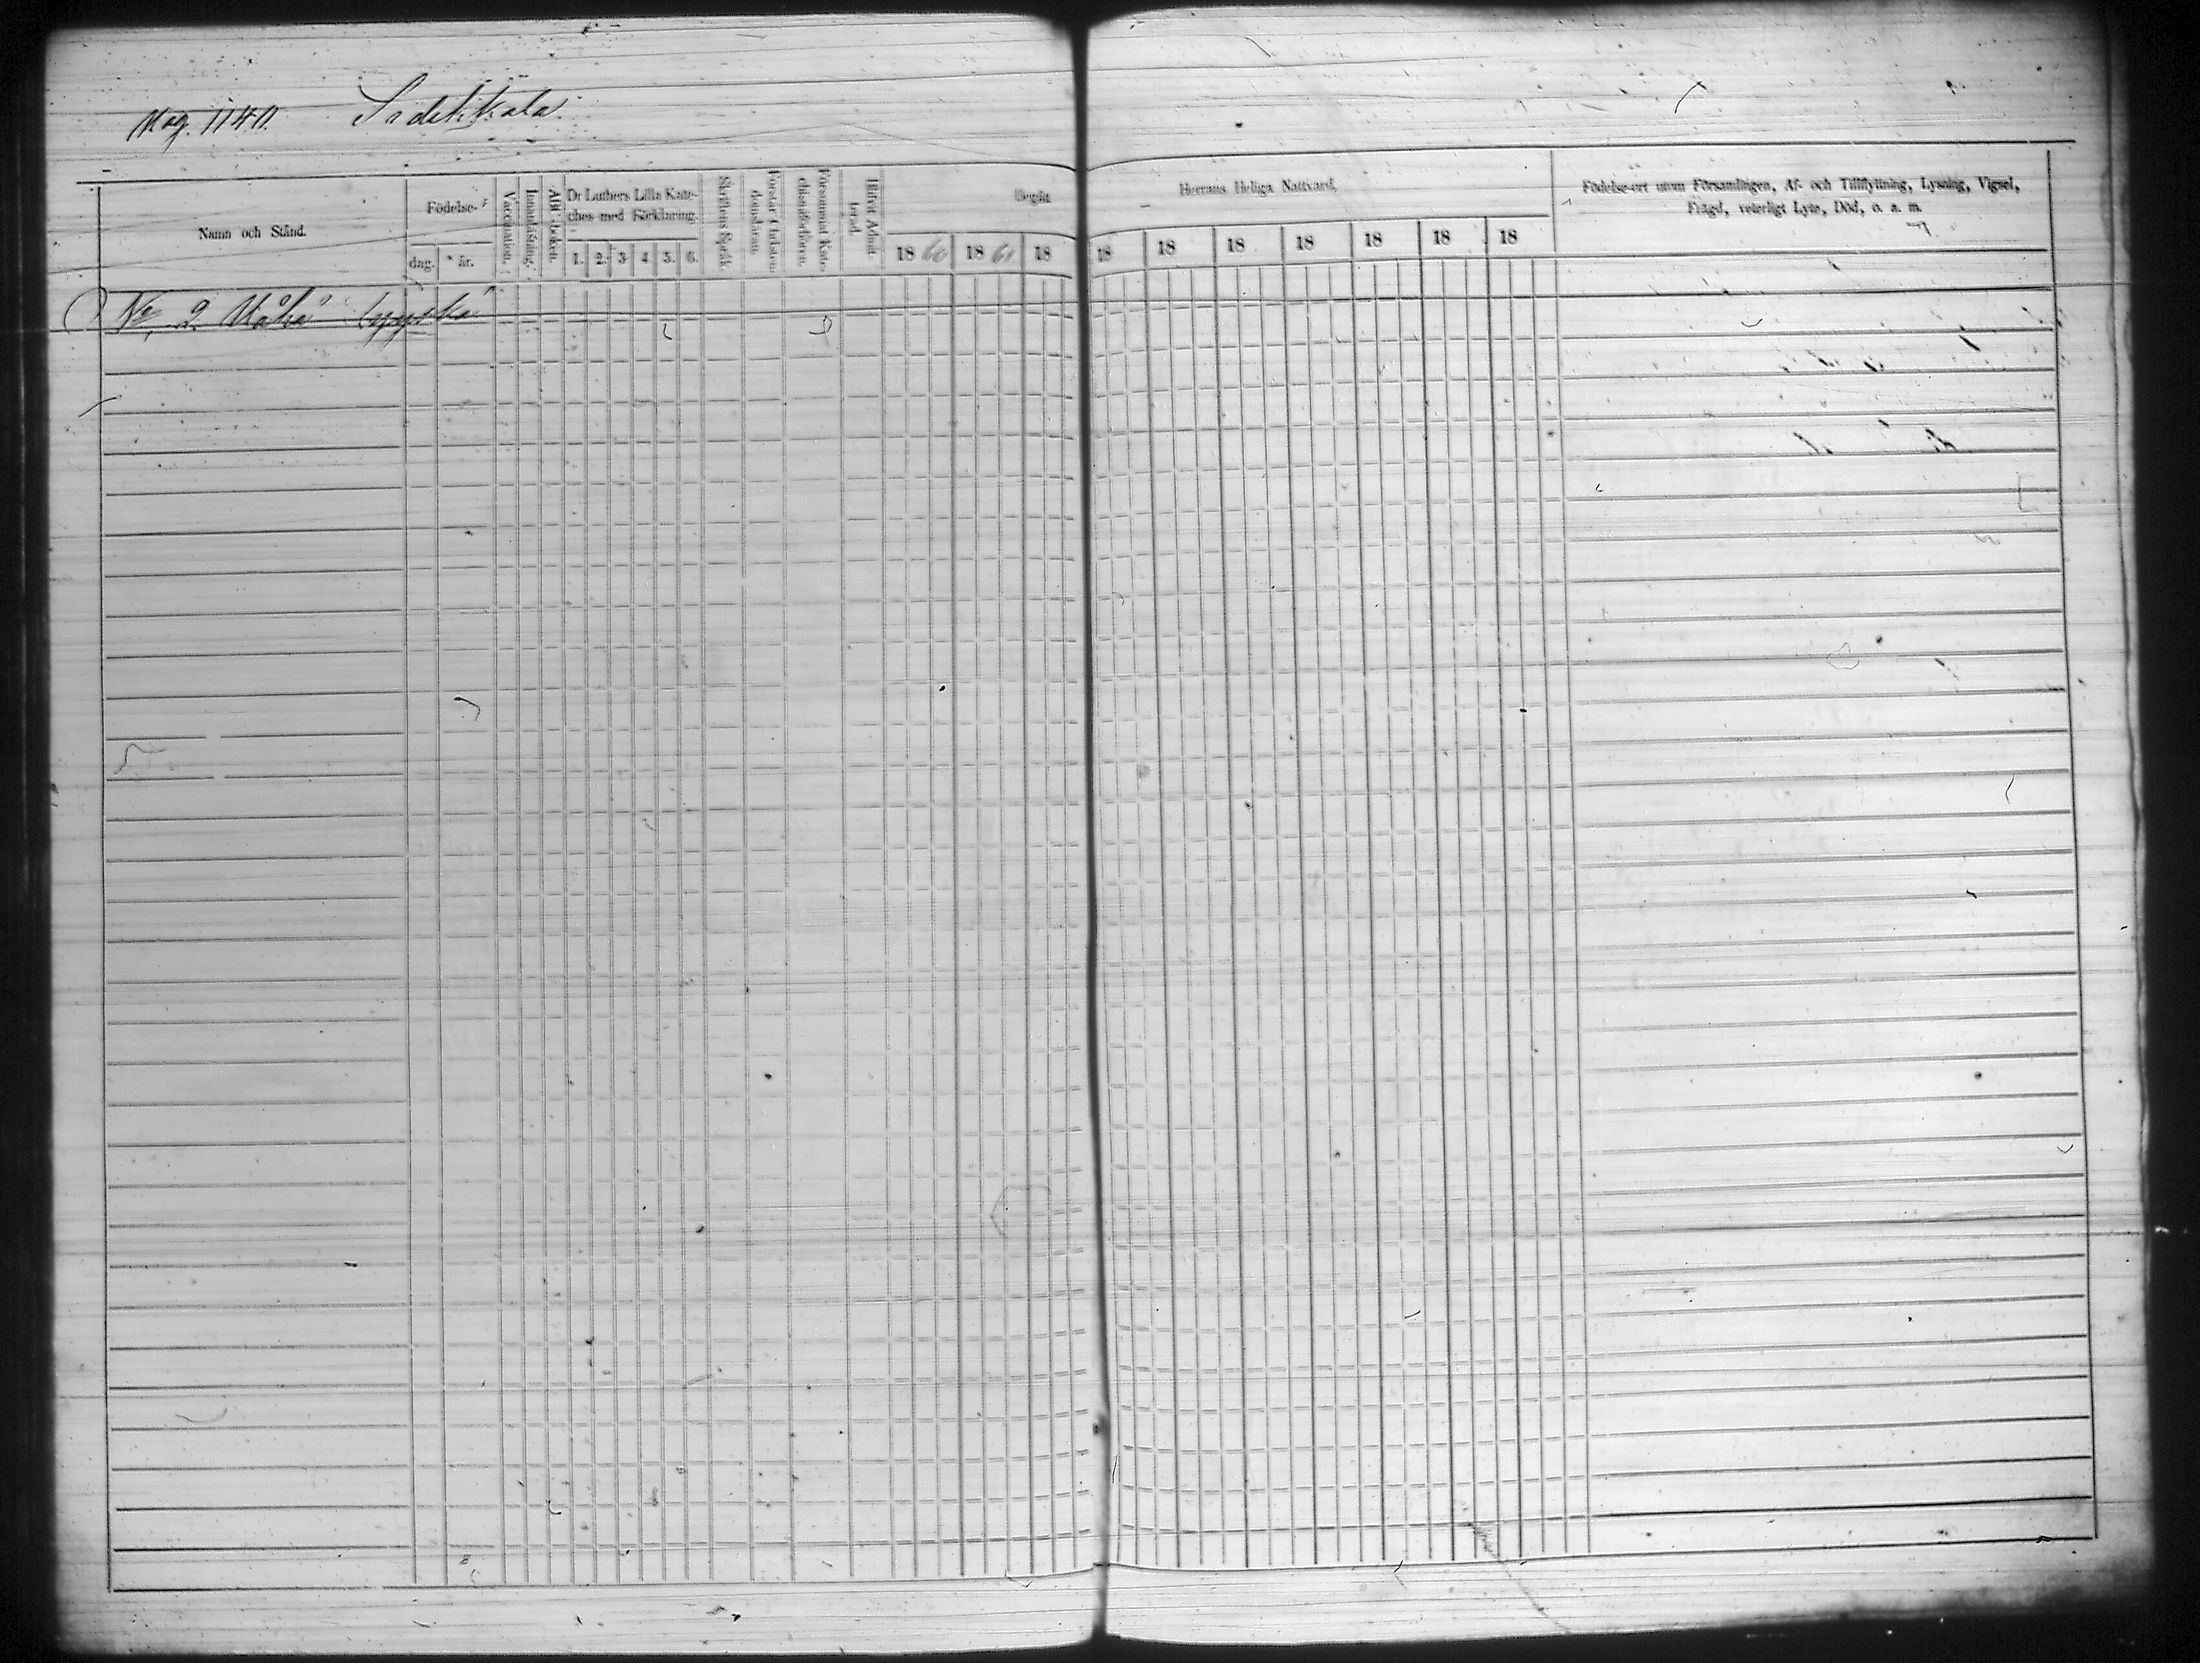 Mag. 1140. Sidikkala
Namn och Stånd.
Födelse-
dag.
år.
Vaccination.
Innanläsning.
ABC-boken.
Dr Luthers Lilla Kate-
ches med Förklaring.
1. 2. 3. 4. 5. 6.
Skriftens Språk.
Förstår Christen-
domsläran.
Försummat Kate-
chismiförhören.
Blifvit Admit-
terad.
Begått
Herrans Heliga Nattvard,
18 60 18 61 18
18 18 18 18 18 18 18
Födelse-ort utom Församlingen, Af- och Tillflyttning, Lysning, Vigsel,
Frägd, veterligt Lyte, Död, o. a. m.
No 2.